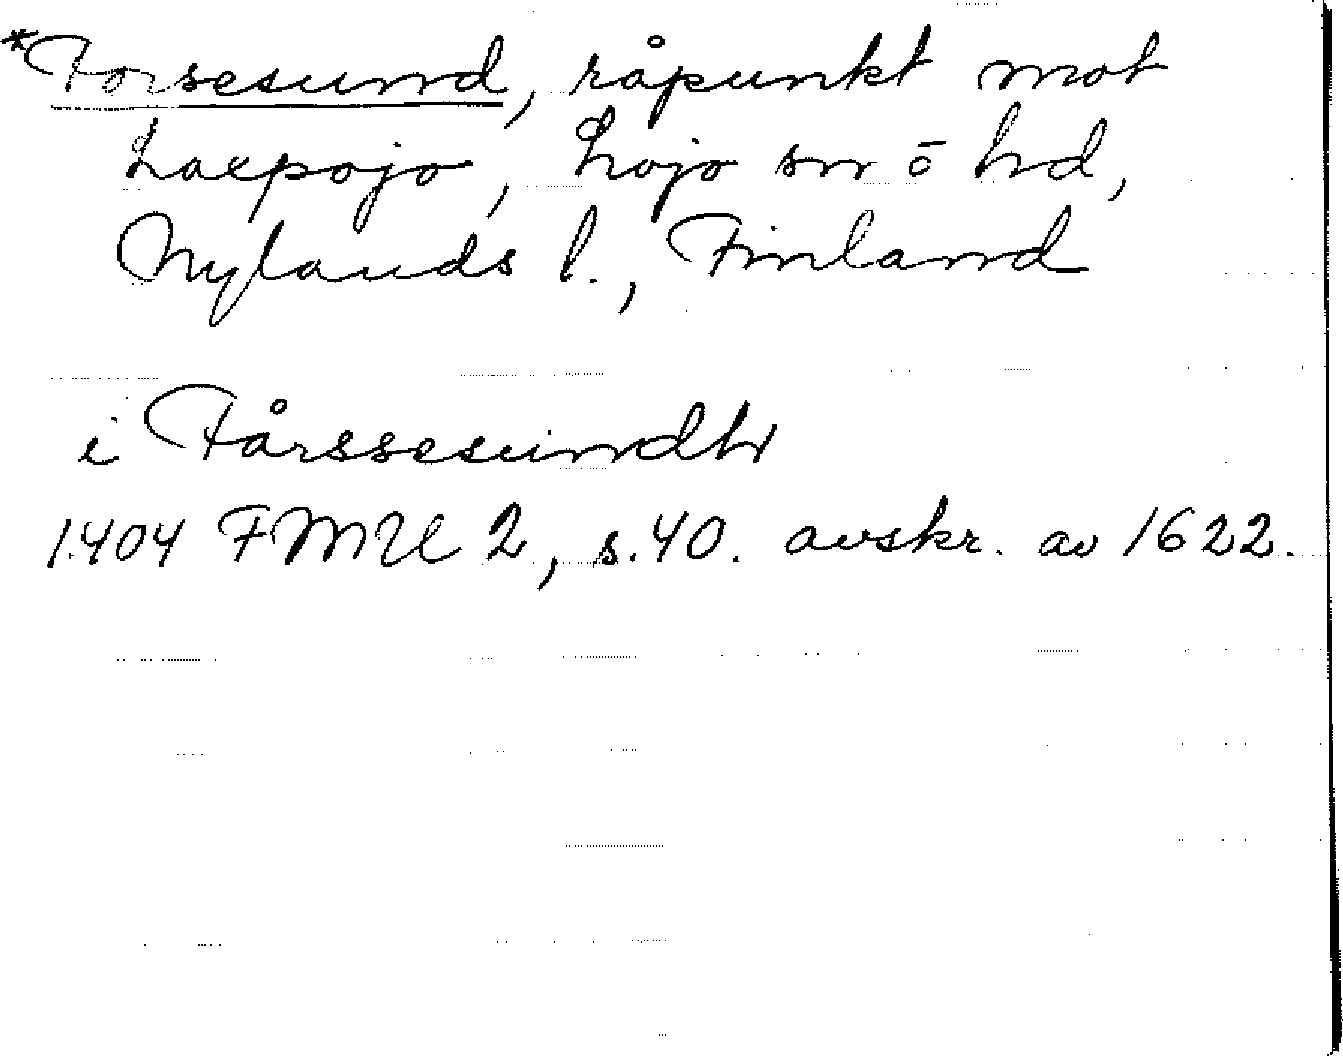 *Forsesund, råpunkt mot
Laxpojo, Lojo sn o hd,
Nylands l., Finland
i Fårssesundh
1404 FMU 2, s. 40. avskr. av 1622.